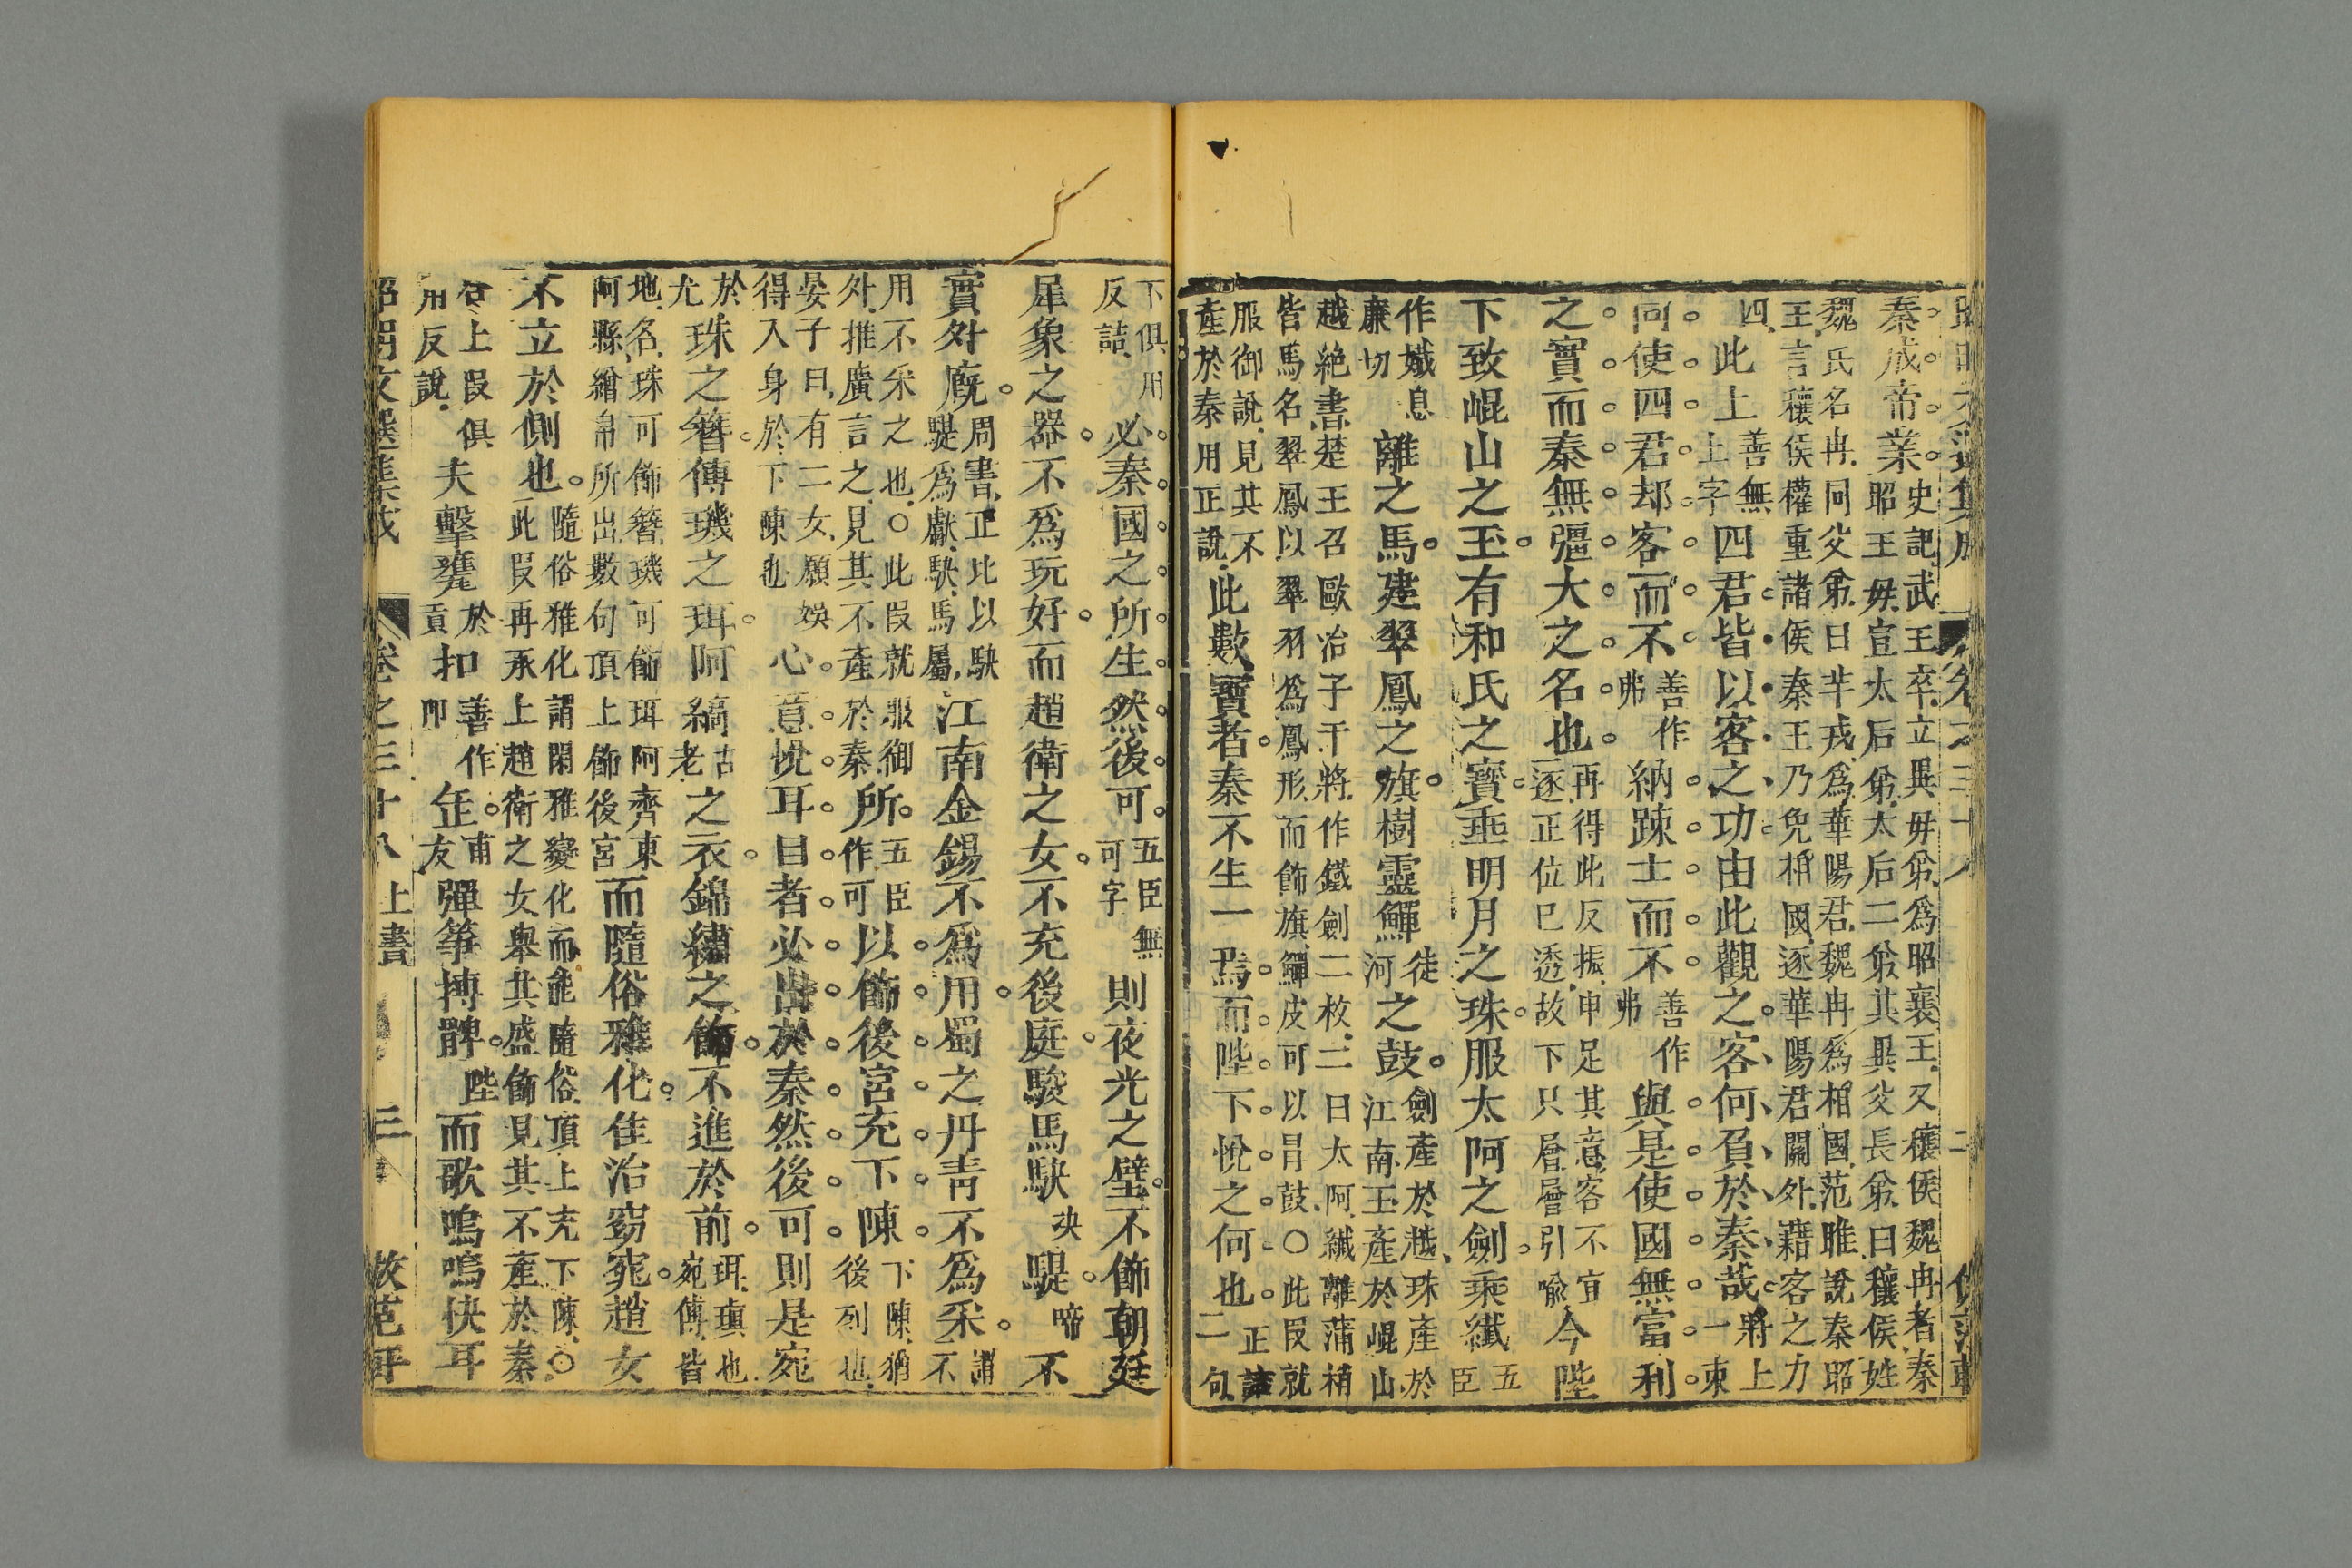 秦成帝業史記武王卒立異毋弟為昭襄王又穰侯魏冉者秦
昭王毋宣太后弟太后二弟其異父長弟曰穰侯姓
魏氏名冉同父弟曰羋戎為華陽君魏冉為相國范雎說秦昭
王言穰侯權重諸侯秦王乃免相國逐華陽君關外藉客之力
四此上善無上字四君皆以客之功由此觀之客何負於秦哉將上一束
向使四君却客而不善作弗納踈士而不善作弗與是使國無富利
之實而秦無彊大之名也再得此反振申足其意客不宜逐正位已透故下只層層引喻今陛
下致崐山之玉有和氏之寶垂明月之珠服太阿之劍乘纖五臣
作孅息廉切離之馬建翠鳳之旗樹靈鼉徒河之鼓劍產於越珠產於江南玉產於崐山
越絕書楚王召歐冶子干將作鐵劍二枚二曰太阿纖離蒲稍
皆馬名翠鳳以翠羽為鳳形而飾旗鼉皮可以冒鼓○此叚就
服御說見其不產於秦用正說此數寶者秦不生一焉而陛下悅之何也二句正詰
下俱用反詰必秦國之所生然後可五臣無可字則夜光之璧不飾朝廷
犀象之器不為玩好而趙衛之女不充後庭駿馬駃決騠啼不
實外廄周書正北以駃騠為獻駃馬屬江南金錫不為用蜀之丹青不為采謂不
用不釆之也○此叚就服御外推廣言之見其不產於秦所五臣作可以飾後宮充下陳下陳猶後列也
晏子曰有二女願得入身於下陳也娛心意悅耳目者必出於秦然後可則是宛
於尤珠之簪傅璣之珥阿縞古老之衣錦繡之飾不進於前珥瑱也宛傅皆
地名珠可飾簪璣可飾珥阿齊東阿縣繒帛所出數句頂上飾後宮而隨俗雅化佳冶窈窕趙女
不立於側也隨俗雅化謂閑雅變化而能隨俗頂上充下陳○此叚再承上趙衛之女舉其盛飾見其不產於秦
合上叚俱用反說夫擊甕於貢扣善作叩缻甫友彈箏搏髀陛而歌嗚嗚快耳
卷之三十八 上書 三